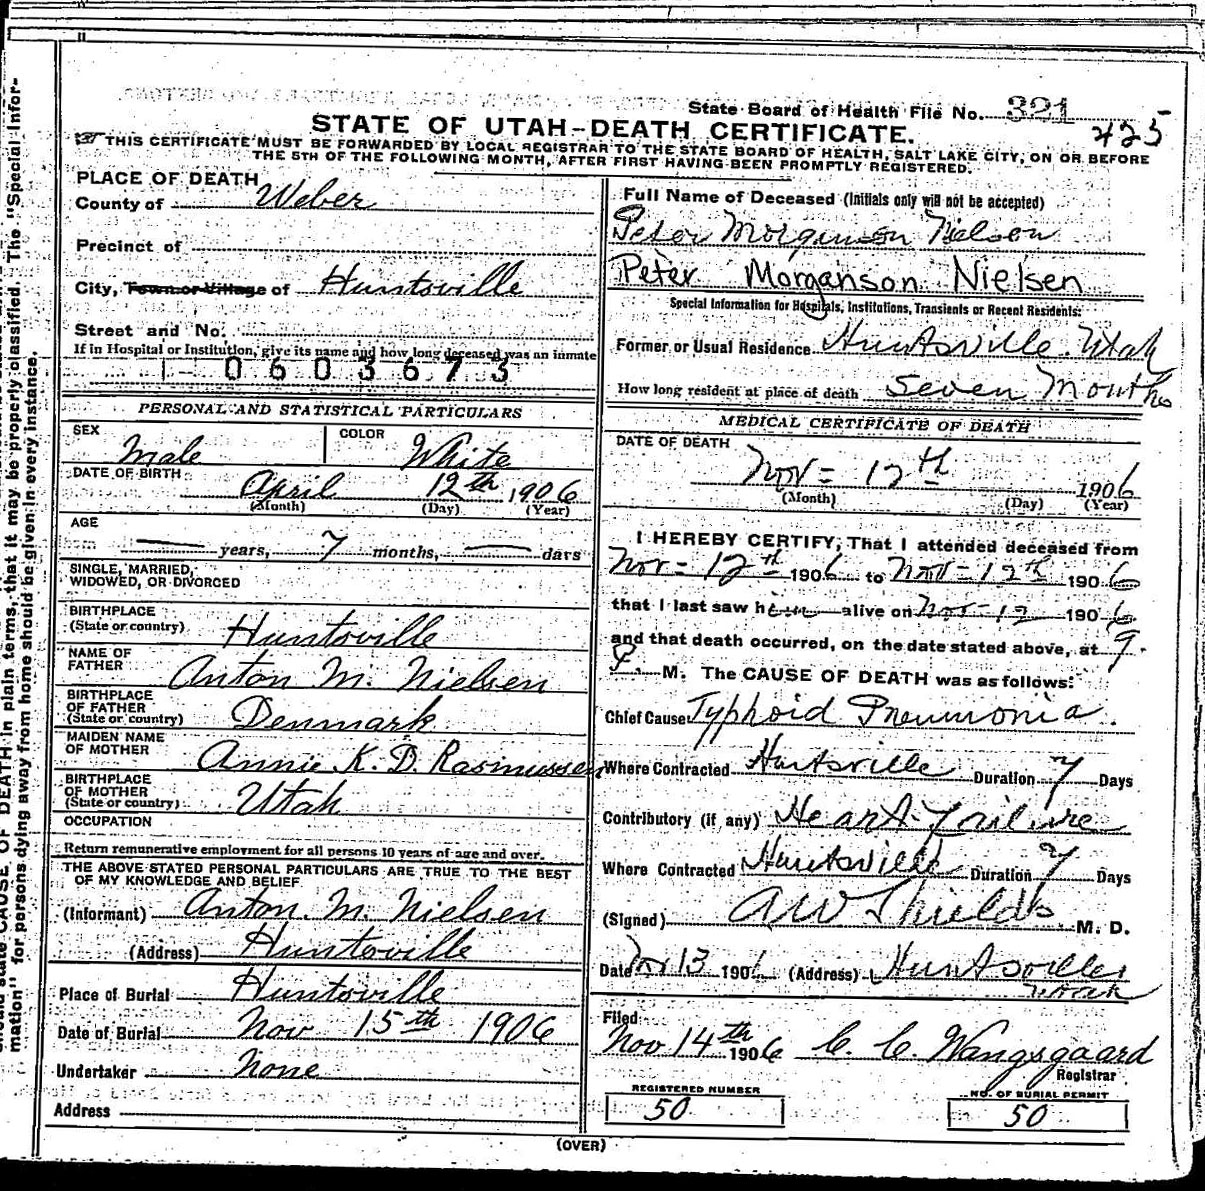 State Board of Health File No. 321
425
STATE OF UTAH-DEATH CERTIFICATE.
THIS CERTIFICATE MUST BE FORWARDED BY LOCAL REGISTRAR TO THE STATE BOARD OF HEALTH, SALT LAKE CITY, ON OR BEFORE
THE 5TH OF THE FOLLOWING MONTH, AFTER FIRST HAVING BEEN PROMPTLY REGISTERED.
PLACE OF DEATH
County of Weber
Precinct of
City, Town or Village of Huntsville
Street and No.
If in Hospital or Institution, give its name and how long deceased was an inmate
0603673
PERSONAL AND STATISTICAL PARTICULARS
SEX Male COLOR White
DATE OF BIRTH April 12th, 1906
(Month) (Day) (Year)
AGE
— years, 7 months, — days
SINGLE, MARRIED,
WIDOWED, OR DIVORCED
BIRTHPLACE
(State or country) Huntsville
NAME OF
FATHER Anton M. Nielsen
BIRTHPLACE
OF FATHER
(State or country) Denmark
MAIDEN NAME
OF MOTHER Annie K. D. Rasmussen
BIRTHPLACE
OF MOTHER
(State or country) Utah
OCCUPATION
Return remunerative employment for all persons 10 years of age and over.
THE ABOVE STATED PERSONAL PARTICULARS ARE TRUE TO THE BEST
OF MY KNOWLEDGE AND BELIEF
(Informant) Anton M. Nielsen
(Address) Huntsville
Place of Burial Huntsville
Date of Burial Nov 15th 1906
Undertaker None
Address
Full Name of Deceased (Initials only will not be accepted)
Peter Morganson Nielson
Peter Morganson Nielsen
Special Information for Hospitals, Institutions, Transients or Recent Residents:
Former or Usual Residence Huntsville Utah
How long resident at place of death Seven Months
MEDICAL CERTIFICATE OF DEATH
DATE OF DEATH
Nov = 12th 1906
(Month) (Day) (Year)
I HEREBY CERTIFY, That I attended deceased from
Nov = 12th 1906 to Nov = 12th 1906
that I last saw him alive on Nov - 12 1906
and that death occurred, on the date stated above, at 9
P. M. The CAUSE OF DEATH was as follows:
Chief Cause Typhoid Pneumonia.
Where Contracted Huntsville Duration 7 Days
Contributory (if any) Heart Failure
Where Contracted Huntsville Duration 7 Days
(Signed) AW Shields M. D.
Date Nov 13 1906 (Address) Huntsville
Utah
Filed
Nov 14th 1906 C. C. Wangsgaard
Registrar
REGISTERED NUMBER
50
NO. OF BURIAL PERMIT
50
(OVER)
mation" for persons dying away from home should be given in every instance.
CAUSE OF DEATH in plain terms, that it may be properly classified. The "Special Infor-